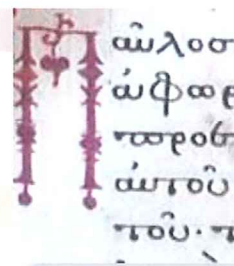 Παῦλοσ
ἀφωρ
προε
αὐτοῦ
τοῦ· π